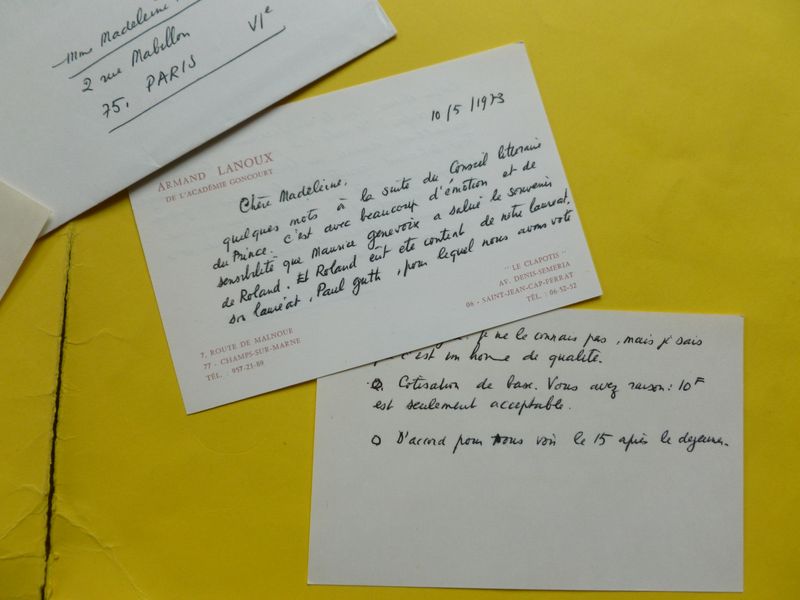 Mme Madeleine
2 rue Mabillon VIe
75. PARIS
10/5/1973
ARMAND LANOUX
DE L'ACADÉMIE GONCOURT
Chère Madeleine,
quelques mots à la suite du Conseil littéraire
du Prince. C'est avec beaucoup d'émotion et de
sensibilité que Maurice Genevoix a salué le souvenir
de Roland. Et Roland eût été content de notre lauréat,
son lauréat, Paul Guth, pour lequel nous avons voté
"LE CLAPOTIS"
AV. DENIS-SEMERIA
06 - SAINT-JEAN-CAP-FERRAT
TÉL. : 06-52-32
7, ROUTE DE MALNOUE
77 - CHAMPS-SUR-MARNE
TÉL. : 957-21-89
je ne le connais pas, mais je sais
c'est un homme de qualité.
Cotisation de base. Vous avez raison : 10F
est seulement acceptable.
D'accord pour nous voir le 15 après le déjeuner.